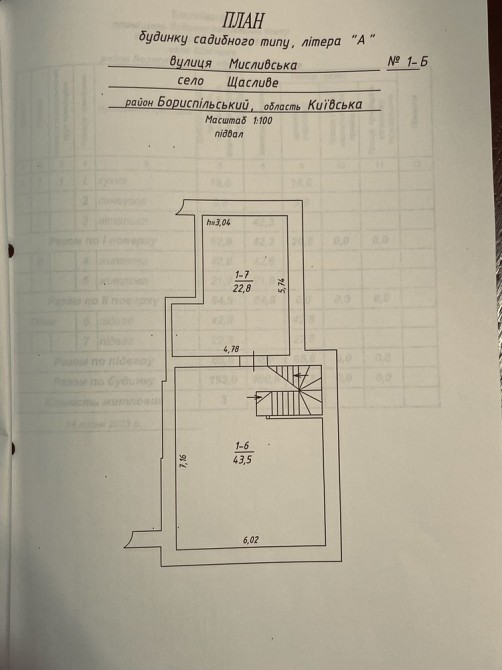 ПЛАН
будинку садибного типу, літера "А"
вулиця Мисливська № 1-Б
село Щасливе
район Бориспільський, область Київська
Масштаб 1:100
підвал
h=3,04
1-7
22,8
5,74
4,78
1-6
43,5
7,16
6,02